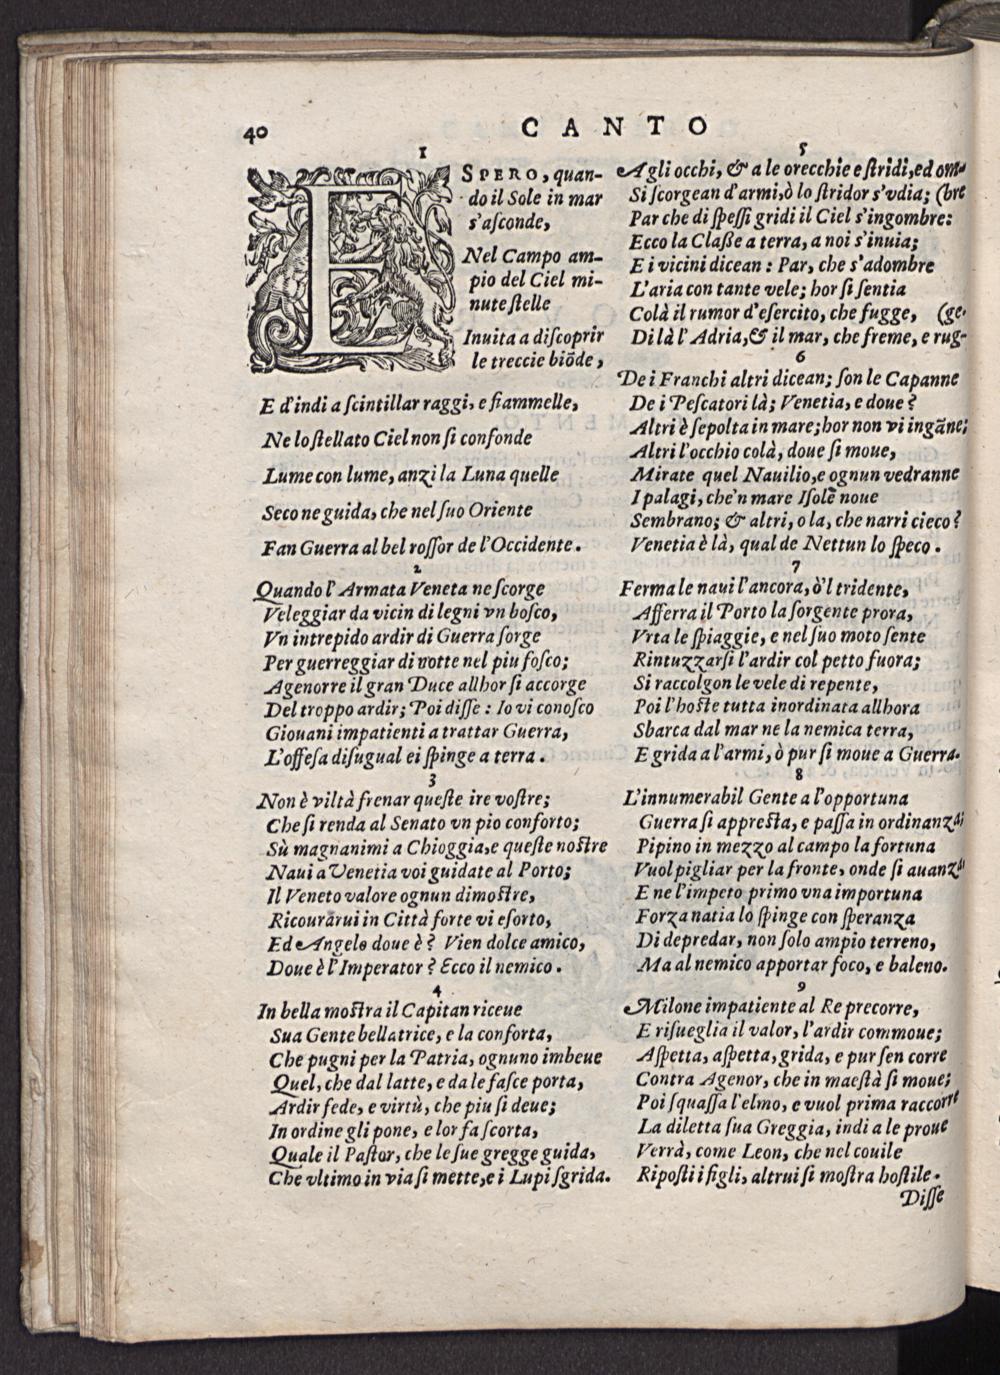 40
CANTO
1
ESPERO, quan-
do il Sole in mar
s'aſconde,
Nel Campo am-
pio del Ciel mi-
nute ſtelle
Inuita a diſcoprir
le treccie biōde,
E d'indi a ſcintillar raggi, e fiammelle,
Ne lo ſtellato Ciel non ſi confonde
Lume con lume, anzi la Luna quelle
Seco ne guida, che nel ſuo Oriente
Fan Guerra al bel roſſor de l'Occidente.
2
Quando l'Armata Veneta ne ſcorge
Veleggiar da vicin di legni vn boſco,
Vn intrepido ardir di Guerra ſorge
Per guerreggiar di notte nel piu foſco;
Agenorre il gran Duce allhor ſi accorge
Del troppo ardir; Poi diſſe: Io vi conoſco
Giouani impatienti a trattar Guerra,
L'offeſa diſugual ei ſpinge a terra.
3
Non è viltà frenar queſte ire voſtre;
Che ſi renda al Senato vn pio conforto;
Sù magnanimi a Chioggia, e queſte noſtre
Naui a Venetia voi guidate al Porto;
Il Veneto valore ognun dimoſtre,
Ricourarui in Città forte vi eſorto,
Ed Angelo doue è? Vien dolce amico,
Doue è l'Imperator? Ecco il nemico.
4
In bella moſtra il Capitan riceue
Sua Gente bellatrice, e la conforta,
Che pugni per la Patria, ognuno imbeue
Quel, che dal latte, e da le faſce porta,
Ardir fede, e virtù, che piu ſi deue;
In ordine gli pone, e lor fa ſcorta,
Quale il Paſtor, che le ſue gregge guida,
Che vltimo in via ſi mette, e i Lupi ſgrida.
5
A gli occhi, & a le orecchie e ſtridi, ed om-
Si ſcorgean d'armi, ò lo ſtridor s'vdia; (bre
Par che di ſpeſſi gridi il Ciel s'ingombre:
Ecco la Claſſe a terra, a noi s'inuia;
E i vicini dicean: Par, che s'adombre
L'aria con tante vele; hor ſi ſentia
Colà il rumor d'eſercito, che fugge, (ge.
Di là l'Adria, & il mar, che freme, e rug-
6
De i Franchi altri dicean; ſon le Capanne
De i Peſcatori là; Venetia, e doue?
Altri è ſepolta in mare; hor non vi ingāne;
Altri l'occhio colà, doue ſi moue,
Mirate quel Nauilio, e ognun vedranne
I palagi, che'n mare Iſole noue
Sembrano; & altri, o la, che narri cieco?
Venetia è là, qual de Nettun lo ſpeco.
7
Ferma le naui l'ancora, ò'l tridente,
Afferra il Porto la ſorgente prora,
Vrta le ſpiaggie, e nel ſuo moto ſente
Rintuzzarſi l'ardir col petto fuora;
Si raccolgon le vele di repente,
Poi l'hoſte tutta inordinata allhora
Sbarca dal mar ne la nemica terra,
E grida a l'armi, ò pur ſi moue a Guerra.
8
L'innumerabil Gente a l'opportuna
Guerra ſi appreſta, e paſſa in ordinanza;
Pipino in mezzo al campo la fortuna
Vuol pigliar per la fronte, onde ſi auanza
E ne l'impeto primo vna importuna
Forza natia lo ſpinge con ſperanza
Di depredar, non ſolo ampio terreno,
Ma al nemico apportar foco, e baleno.
9
Milone impatiente al Re precorre,
E riſueglia il valor, l'ardir commoue;
Aſpetta, aſpetta, grida, e pur ſen corre
Contra Agenor, che in maeſtà ſi moue;
Poi ſquaſſa l'elmo, e vuol prima raccorre
La diletta ſua Greggia, indi a le proue
Verrà, come Leon, che nel couile
Ripoſti i figli, altrui ſi moſtra hoſtile.
Diſſe